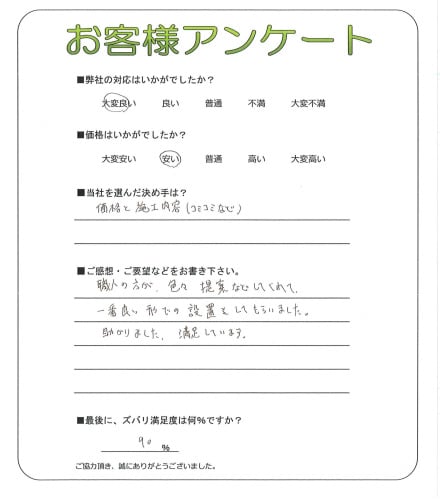 お客様アンケート
■弊社の対応はいかがでしたか?
大変良い 良い 普通 不満 大変不満
■価格はいかがでしたか?
大変安い 安い 普通 高い 大変高い
■当社を選んだ決め手は?
価格と施工内容(コミコミなど)
■ご感想・ご要望などをお書き下さい。
職人の方が、色々 提案などしてくれて、
一番良い形での設置をしてもらいました。
助かりました、満足しています。
■最後に、ズバリ満足度は何%ですか?
90 %
ご協力頂き、誠にありがとうございました。